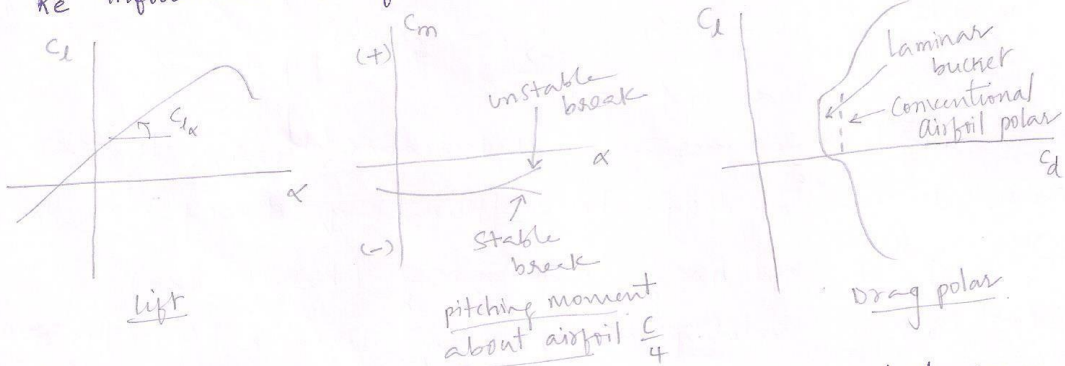 Re
C_l
C_lα
α
Lift
C_m
(+)
unstable
break
α
stable
break
(-)
pitching moment
about airfoil C/4
C_l
Laminar
bucket
Conventional
airfoil polar
C_d
Drag polar